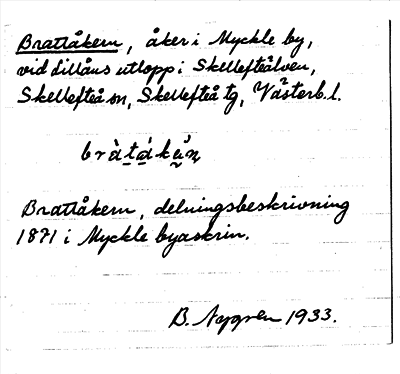 Brattåkern, åker i Myckle by,
vid Lillåns utlopp i Skellefteälven,
Skellefteå sn, Skellefteå tg, Västerb. l.
Brattåkern, delningsbeskrivning
1871 i Myckle byaskrin.
B. Nygren 1933.